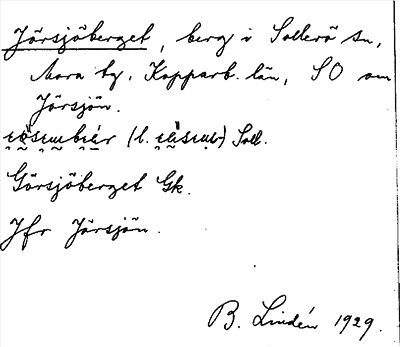 Jörsjöberget, berg i Sollerö sn,
Mora tg. Kopparb. län, SO om
Jörsjön.
(l. Soll.
Görsjöberget Gk.
Jfr Jörsjön.
B. Lindén 1929.